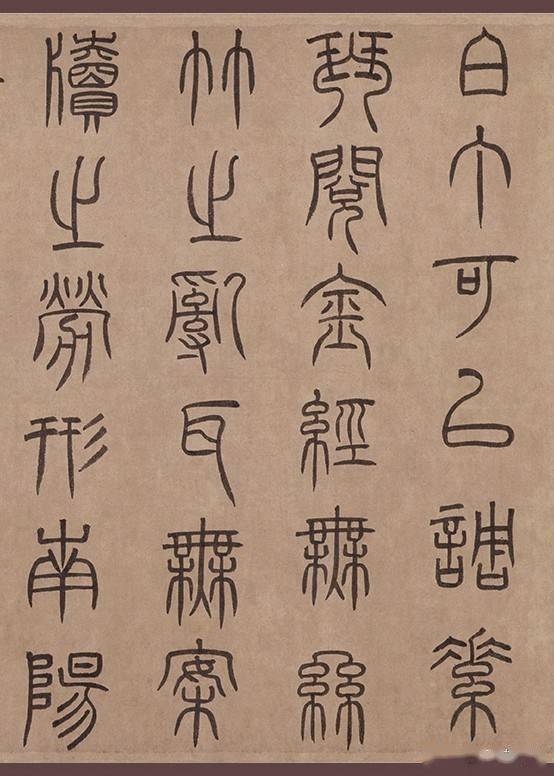 白丁可以調素
琴閱金經無絲
竹之亂耳無案
牘之勞形南陽